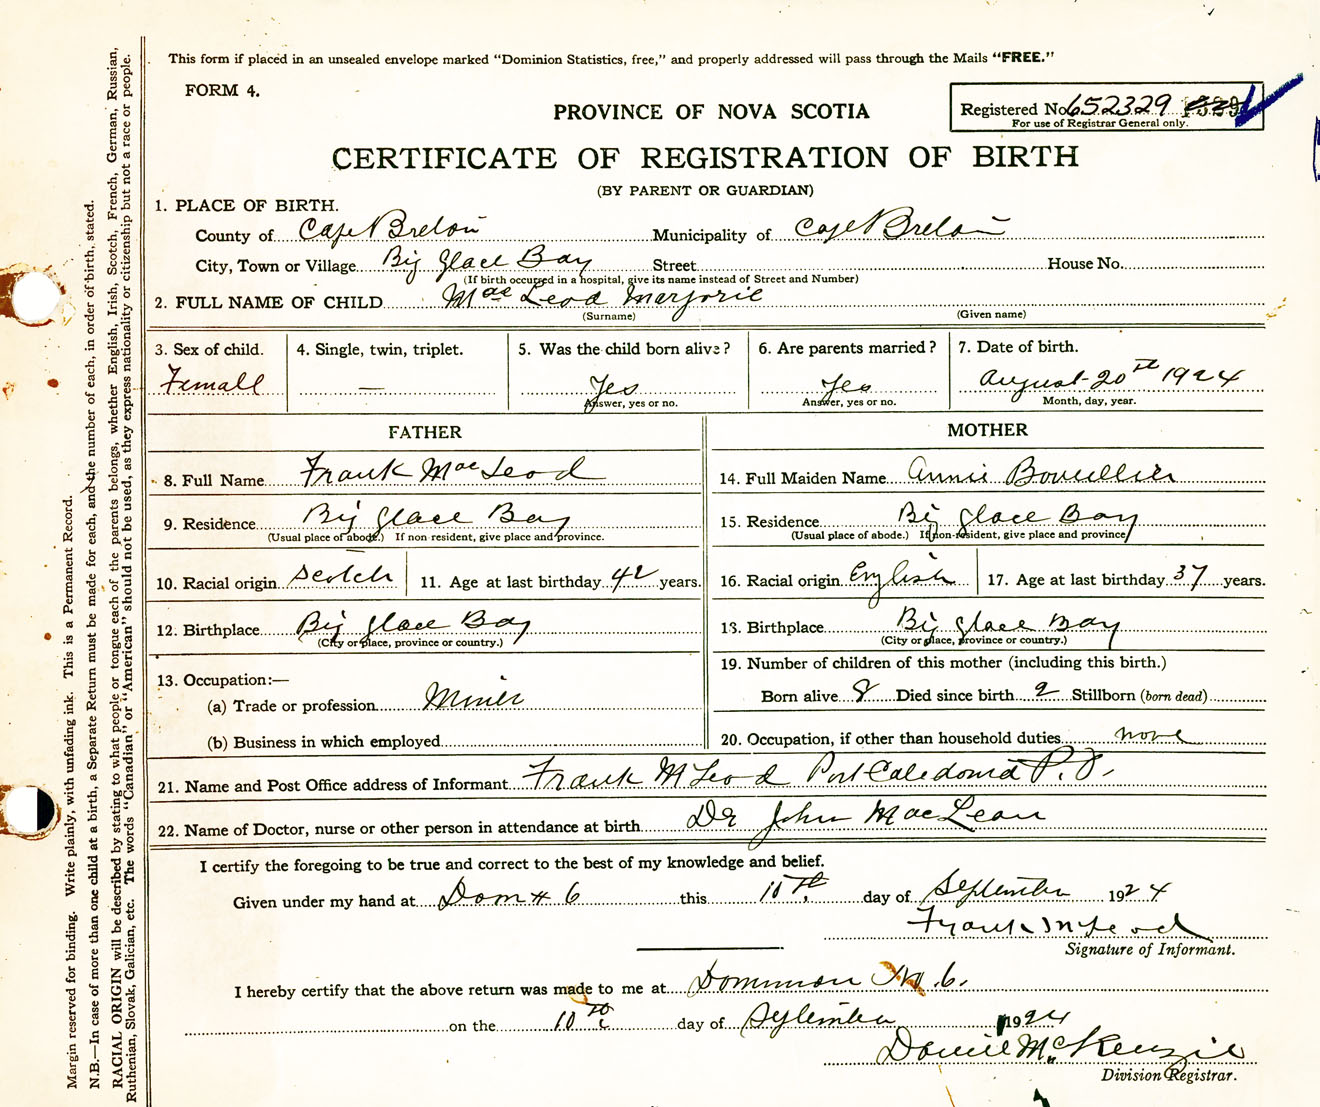 This form if placed in an unsealed envelope marked "Dominion Statistics, free," and properly addressed will pass through the Mails "FREE."
FORM 4.
PROVINCE OF NOVA SCOTIA
Registered No. 652329
For use of Registrar General only.
CERTIFICATE OF REGISTRATION OF BIRTH
(BY PARENT OR GUARDIAN)
1. PLACE OF BIRTH.
County of Cape Breton Municipality of Cape Breton
City, Town or Village Big Glace Bay Street House No.
(If birth occurred in a hospital, give its name instead of Street and Number)
2. FULL NAME OF CHILD MacLeod Marjorie
(Surname) (Given name)
3. Sex of child. 4. Single, twin, triplet. 5. Was the child born alive? 6. Are parents married? 7. Date of birth.
Femall — Yes Yes August 20th 1924
Answer, yes or no. Answer, yes or no. Month, day, year.
FATHER MOTHER
8. Full Name Frank MacLeod 14. Full Maiden Name Annie
9. Residence Big Glace Bay 15. Residence Big Glace Bay
(Usual place of abode.) If non-resident, give place and province. (Usual place of abode.) If non-resident, give place and province
10. Racial origin Scotch 11. Age at last birthday 42 years. 16. Racial origin English 17. Age at last birthday 37 years.
12. Birthplace Big Glace Bay 18. Birthplace Big Glace Bay
(City or place, province or country.) (City or place, province or country.)
13. Occupation:— 19. Number of children of this mother (including this birth.)
(a) Trade or profession Miner Born alive 8 Died since birth 2 Stillborn (born dead)
(b) Business in which employed 20. Occupation, if other than household duties none
21. Name and Post Office address of Informant Frank McLeod Port Caledonia P.O.
22. Name of Doctor, nurse or other person in attendance at birth Dr John MacLean
I certify the foregoing to be true and correct to the best of my knowledge and belief.
Given under my hand at Dom # 6 this 10th day of September 1924
Frank McLeod
Signature of Informant.
I hereby certify that the above return was made to me at Dominion No. 6.
on the 10th day of September 1924
McKenzie
Division Registrar.
Margin reserved for binding. Write plainly, with unfading ink. This is a Permanent Record.
N.B.—In case of more than one child at a birth, a Separate Return must be made for each, and the number of each, in order of birth, stated.
RACIAL ORIGIN will be described by stating to what people or tongue each of the parents belongs, whether English, Irish, Scotch, French, German, Russian,
Ruthenian, Slovak, Galician, etc. The words "Canadian" or "American" should not be used, as they express nationality or citizenship but not a race or people.